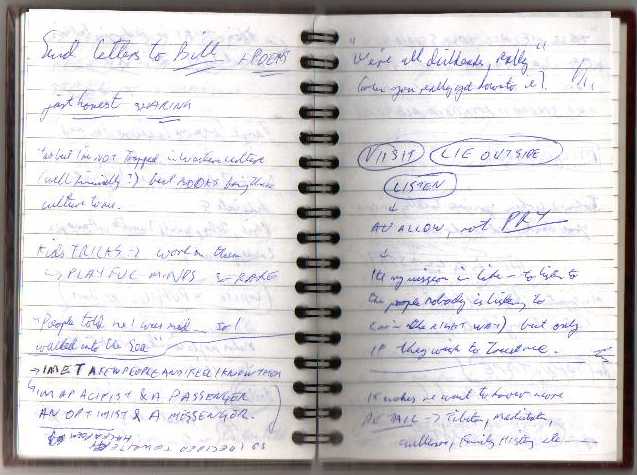 Send letters to Bill + POEMS
just honest SHARING
but I'm NOT Trapped in western culture
(well financially?) but BOOKS bring these
culture
KIDS TRICKS → work on them
↳ PLAYFUL MINDS RARE
"People told me I was mad so I
walked into the Sea"
→ I MET A FEW PEOPLE AND I FEEL I KNOW THEM
I'M A PACIFIST & A PASSENGER
AN OPTIMIST & A MESSENGER.
SO I DECIDED TO WRITE
"We're all dickheads, really"
(when you really get down to it).
VISIT LIE OUTSIDE
LISTEN
↓
ALLOW, not PRY
↓
It's my mission in life - to listen to
the people nobody is listening to
(in the RIGHT WAY) but only
IF they wish to
It makes me want to know more
DETAIL → Tibetan, meditation,
cultures, Family History etc